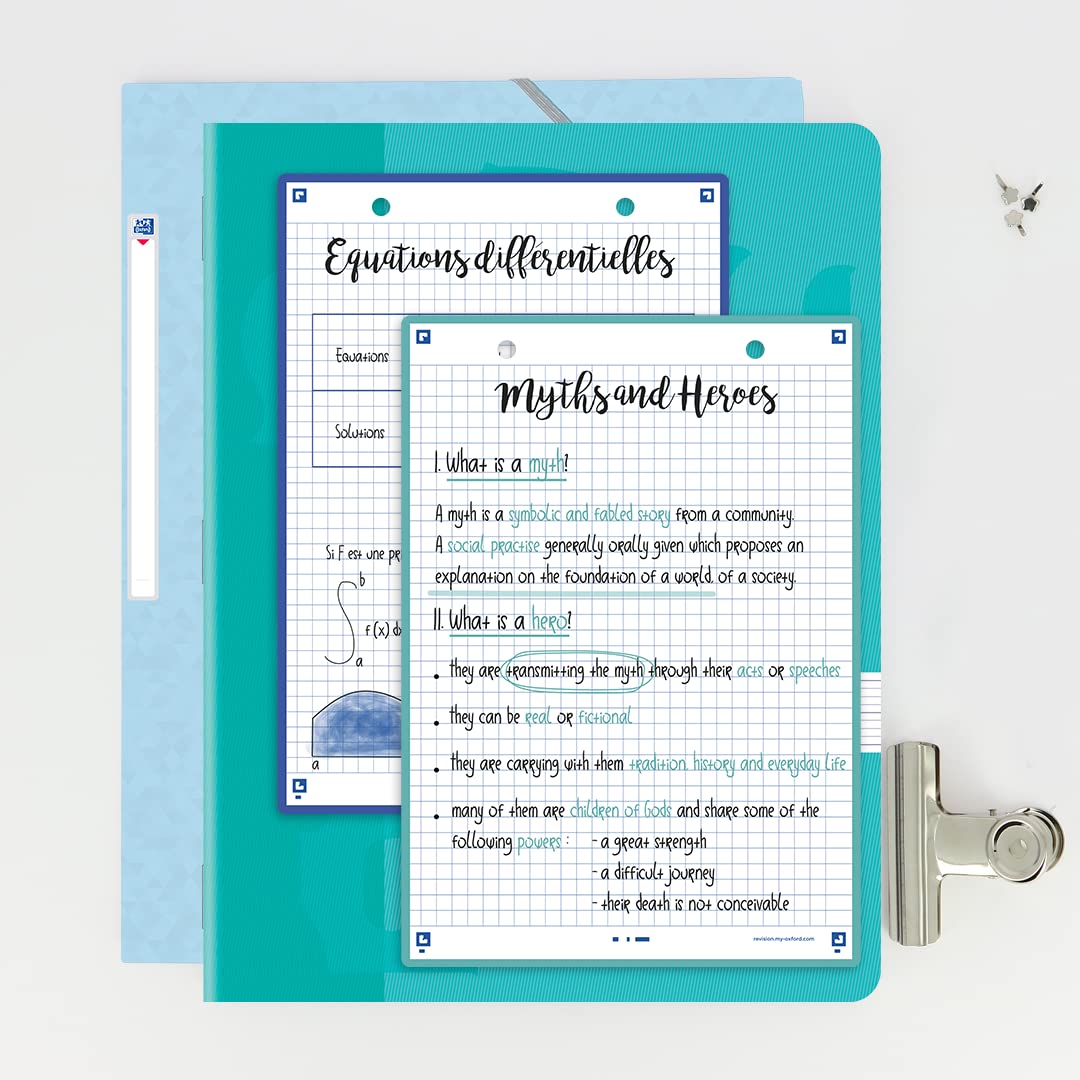 Equations différentielles
Equations
Solutions
Si F est une
f(x)
b
a
a
Myths and Heroes
I. What is a myth?
A myth is a symbolic and fabled story from a community.
A social practise generally orally given which proposes an
explanation on the foundation of a world, of a society.
II. What is a hero?
. they are transmitting the myth through their acts or speeches
. they can be real or fictional
. they are carrying with them tradition, history and everyday life
. many of them are children of Gods and share some of the
following powers : - a great strength
- a difficult journey
- their death is not conceivable
revision.my-oxford.com